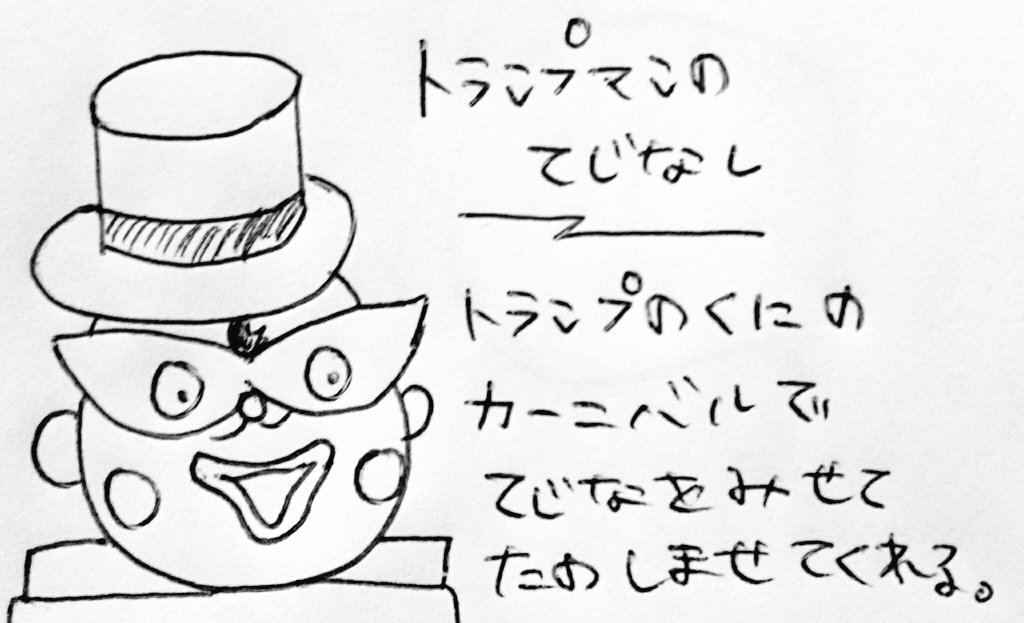 トランプマンの
てじなし
トランプのくにの
カーニバルで
てじなをみせて
たのしませてくれる。